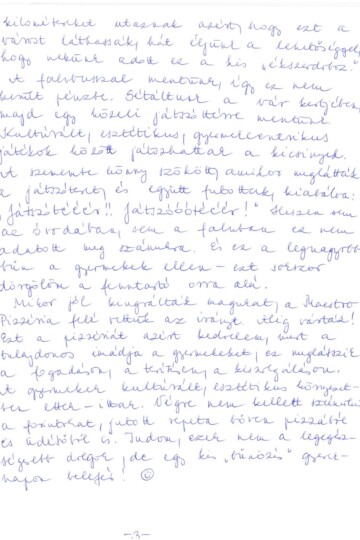 kilométereket utaznak azért, hogy ezt a
várost láthassák, hát éljünk a lehetőséggel,
hogy nekünk adott ez a kis „ékszerdoboz".
A falubusszal mentünk, így ez nem
került pénzbe. Sétáltunk a vár kertjében,
majd egy közeli játszótérre mentünk.
Kulturált, esztétikus, gyermekcentrikus
játékok között játszhattak a kicsinyek.
A szemembe könny szökött, amikor meglátták
a játszóteret, és együtt futottak, kiabálva:
„Játszótééér!! Játszóóótééér!" Hiszen sem
az óvodában, sem a faluban ez nem
adatott meg számukra. És ez a legnagyobb
bűn a gyermekek ellen – ezt sokszor
dörgölöm a fenntartó orra alá.
Mikor jól kiugrálták magukat, a Maestro
Pizzéria felé vettük az irányt. Alig várták!
Ezt a pizzériát azért kedvelem, mert a
tulajdonos imádja a gyermekeket, ez meglátszik
a fogadáson, a terítésen, a kiszolgáláson.
A gyermekek kulturált, esztétikus környezet-
ben ettek – ittak. Végre nem kellett számolni
a forintokat, jutott repeta bőven pizzából
és üdítőből is. Tudom, ezek nem a legegész-
ségesebb dolgok, de egy kis „bűnözés" gyerek-
napon belefér! ☺
-3-